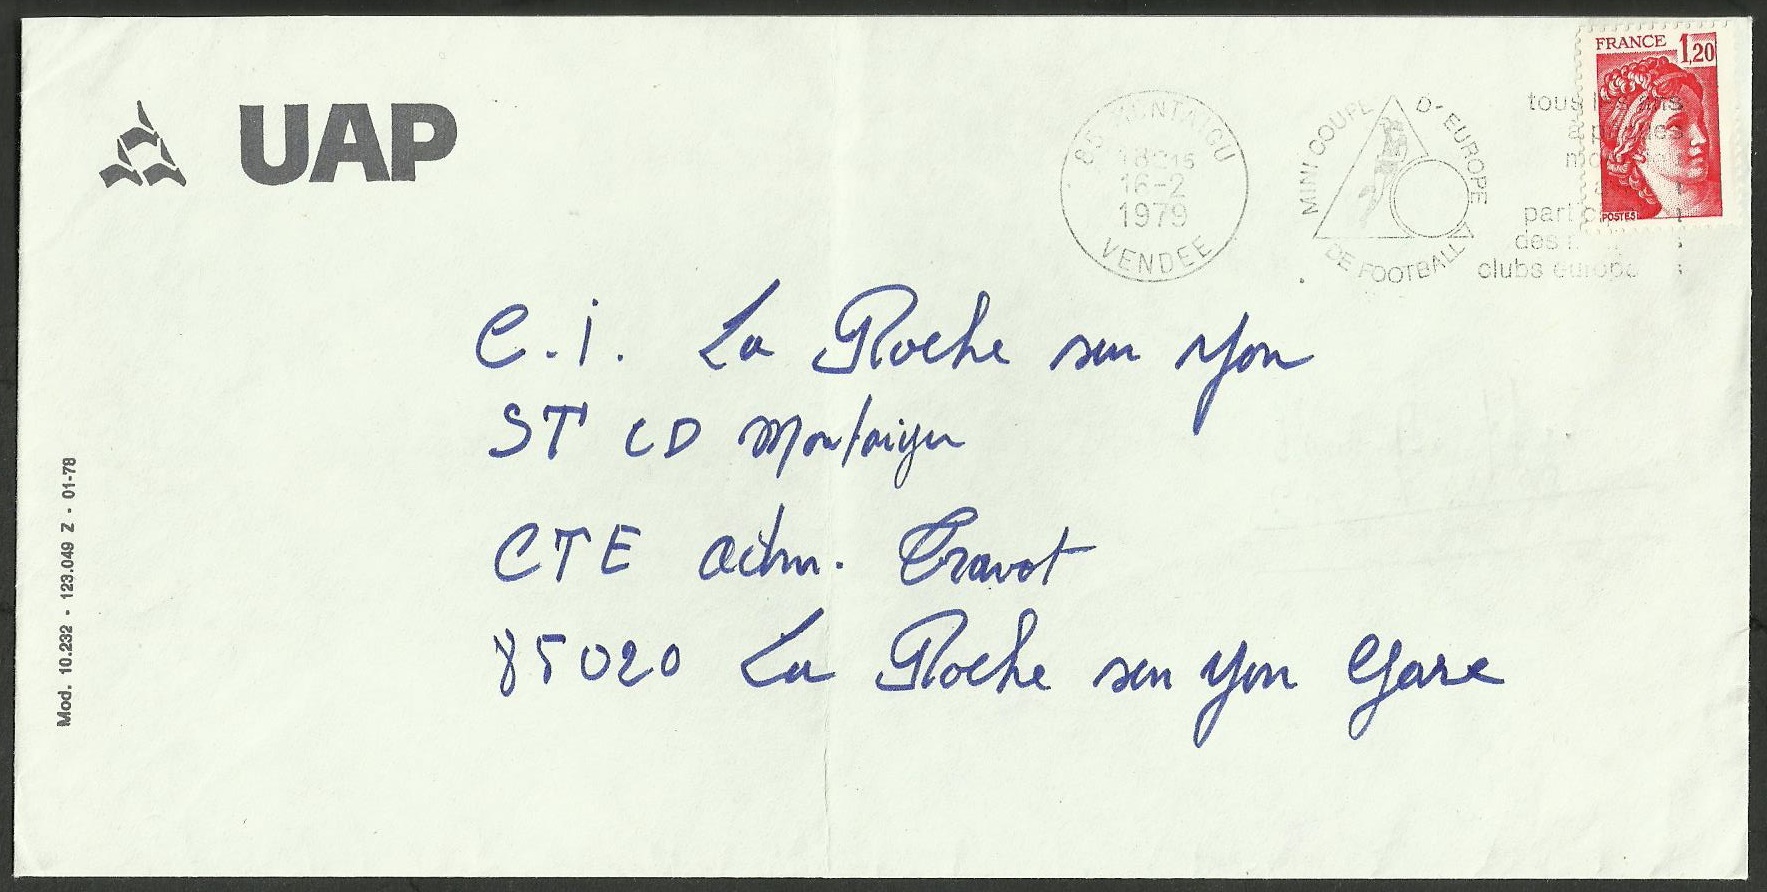 UAP
FRANCE 1,20
POSTES
85 MONTAIGU
18H15
16-2
1979
VENDEE
MINI COUPE D'EUROPE
DE FOOTBALL
tous les ans
a
part
des
clubs europ
C.I. La Roche sur Yon
ST CD Montaigu
CTE adm. Travot
85020 La Roche sur Yon Gare
Mod. 10.232 - 123.049 Z - 01-78